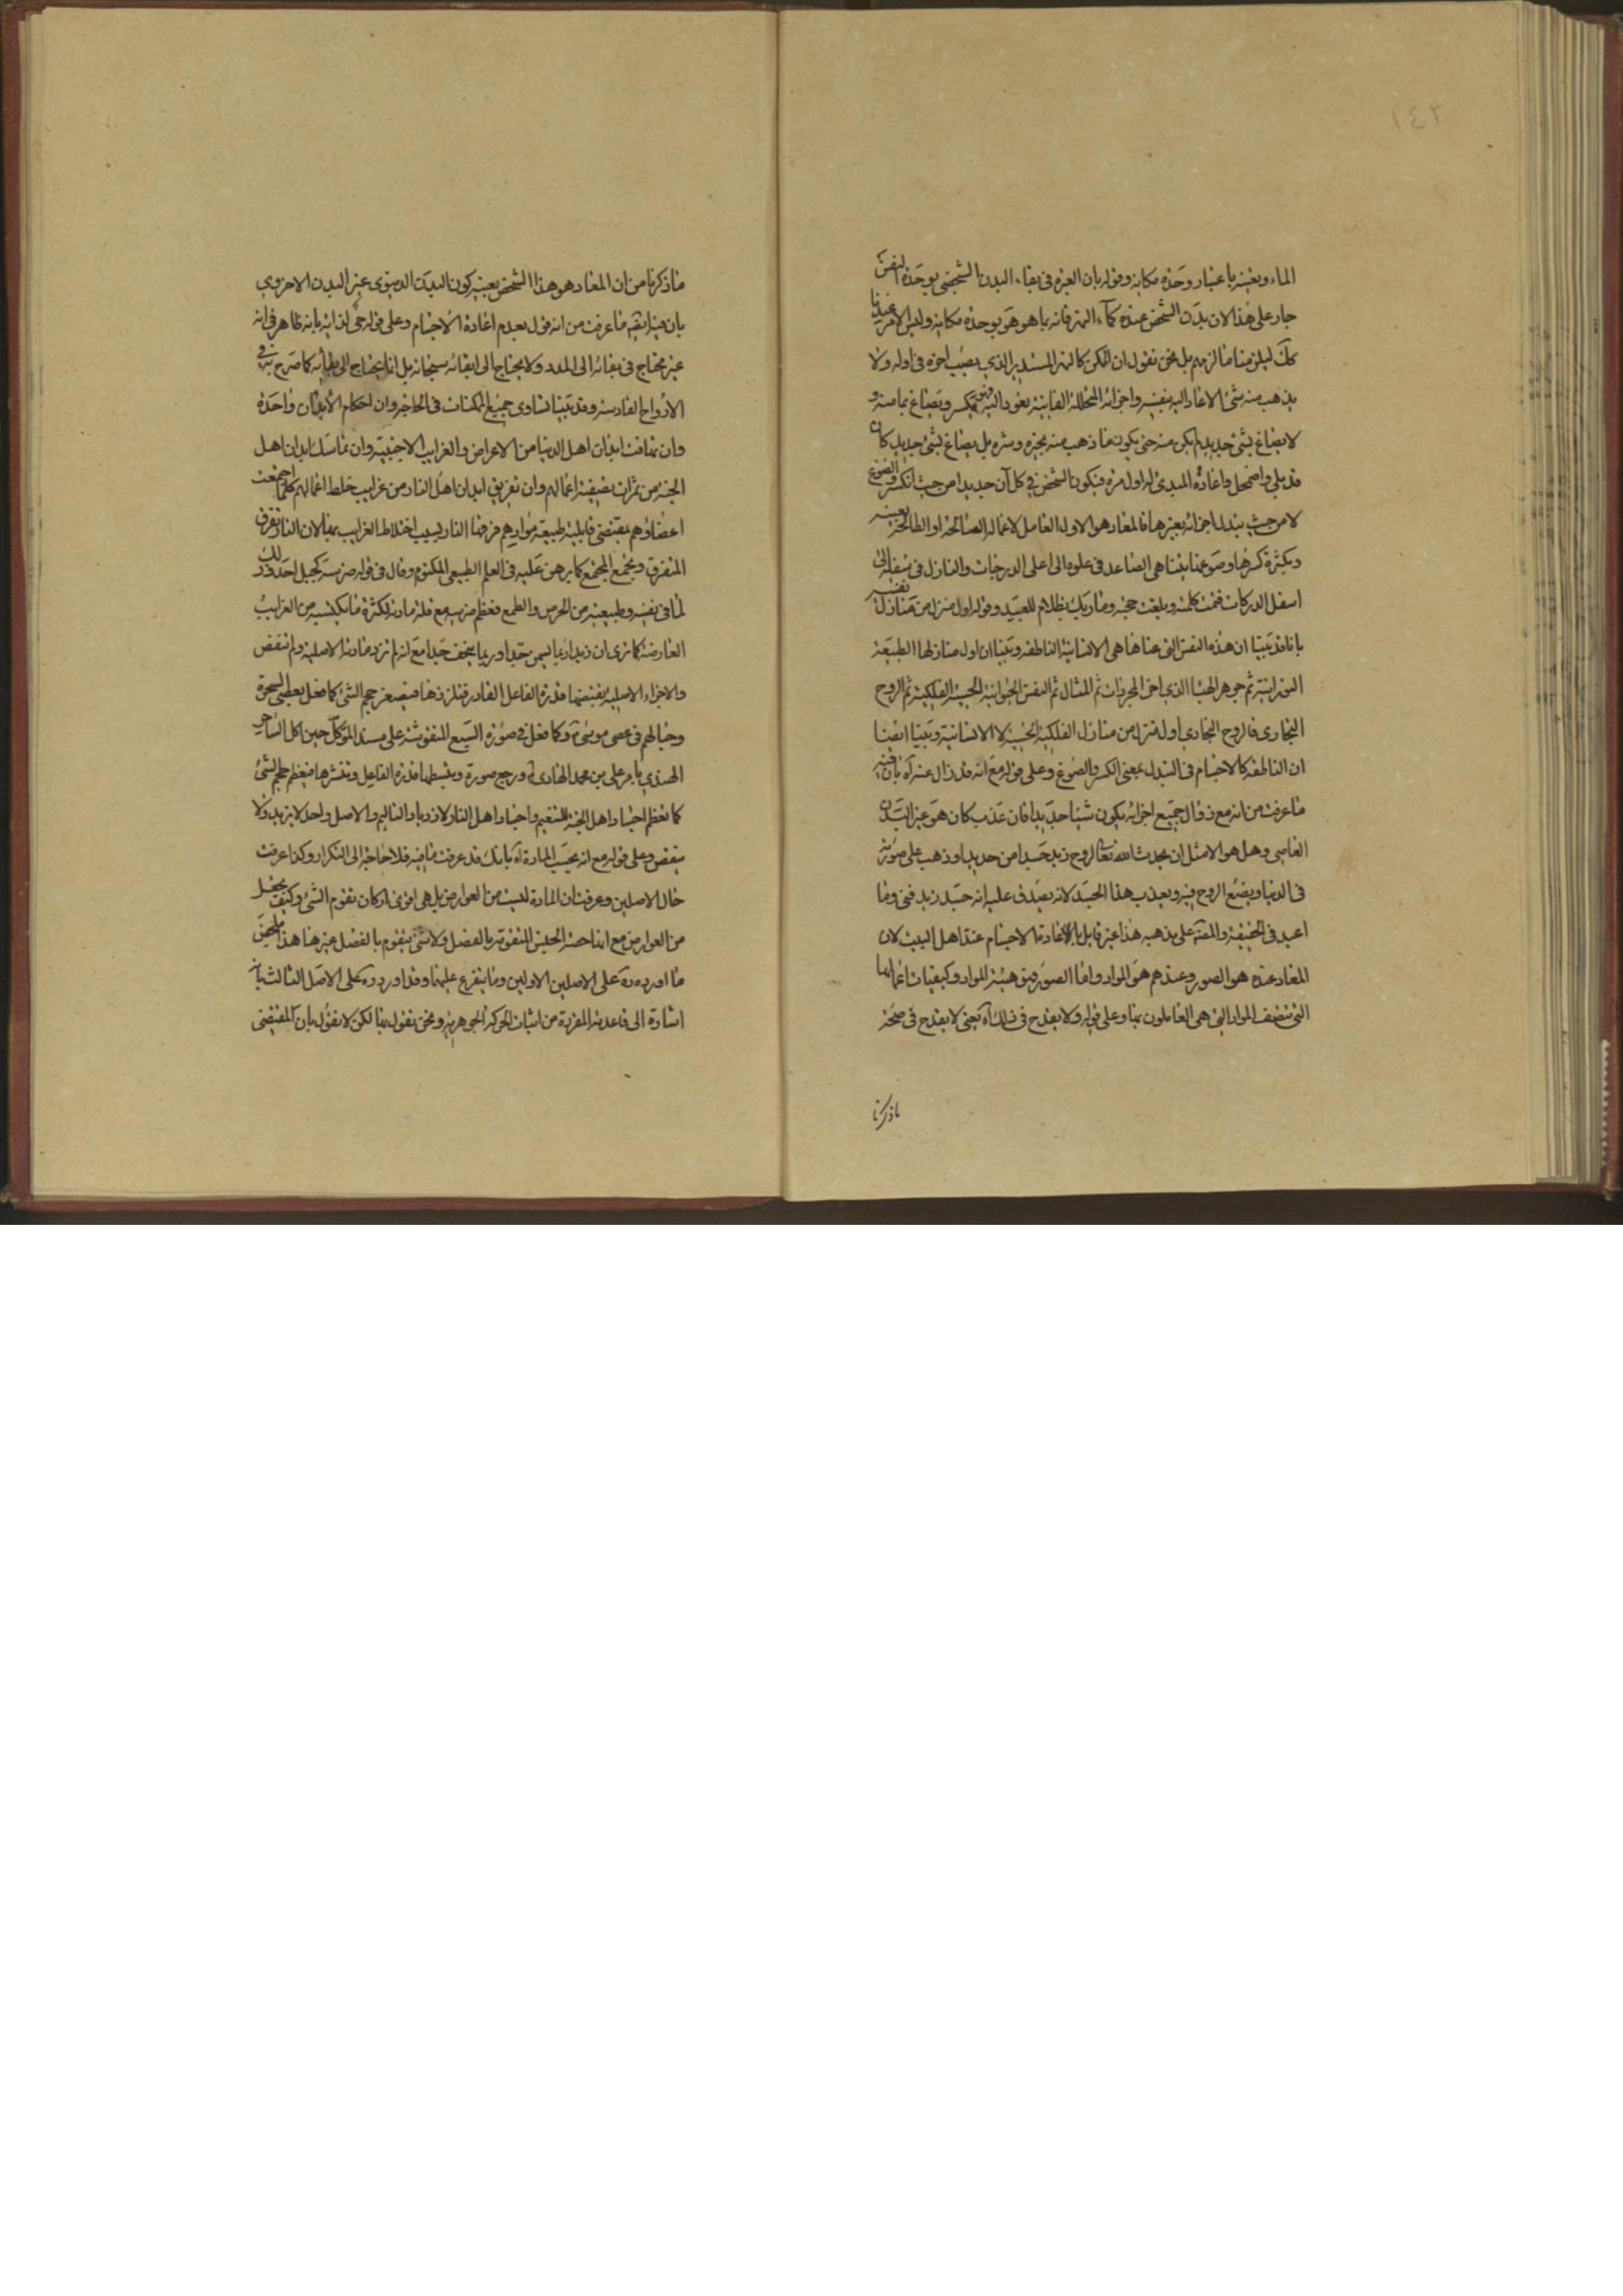 ١٤٢
الماء ويعينه باعتبار وحدة مكانه وقوله بان العبرة في بقاء البدن الشخصي بوحدة النفس
جار على هذا لان بدن الشخص عنده كماء النهر فانه بما هو هو بوحدة مكانه وليس الامر عندنا
كك ليلزمنا ما الزمهم بل نحن نقول ان الممكن كالنهر المستدير الذي يصب اخره في اوله ولا
يذهب منه شئ الا عاد اليه بنفسه واجزائه المتحللة الفانية يعود اليه فهي تكسر وتصاغ بما منه و
لا يصاغ بشئ جديد لم يكن منه حتى يكون ما ذهب منه بخيره وشره بل يصاغ بشئ جديد كان
قد بلي واضمحل واعاده المبدئ له اول مرة فيكون الشخص في كل آن جديدا من حيث الكسر والصوغ
لا من حيث تبدل اجزائه بغيرها فالمعاد هو الاول العامل لاعماله الصالحة او الطالحة بعينه
وبكثرة كسرها وصوغها يتناهى الصاعد في علوه الى اعلى الدرجات والنازل في سفله الى
اسفل الدركات فتمت كلمته وبلغت حجته وما ربك بظلام للعبيد وقوله اول منزل من منازل نفسه
بانا قد بينا ان هذه النفس التي عناها هي الانسانية الناطقة وبينا ان اول منازلها الطبيعة
النورانية ثم جوهر الهباء الذي اخر المجردات ثم المثال ثم النفس الحيوانية الحسية الفلكية ثم الروح
البخاري فالروح البخاري اول منزل من منازل الفلكية الحسية لا الانسانية وبينا ايضا
ان الناطقة كالاجسام في التبدل بمعنى الكسر والصوغ وعلى قوله مع انه قد زال عنه آه بان فيه
ما عرفت من انه مع زوال جميع اجزائه يكون شيئا جديدا فان عذب كان هو غير البدن
العاصي وهل هو الا مثل ان يحدث الله تعالى لروح زيد جسدا من حديد او ذهب على صورته
في الدنيا ويضع الروح فيه ويعذب هذا الجسد لانه يصدق عليه انه جسد زيد فنى وما
اعيد في الحقيقة والمصنف على مذهبه هذا غير قابل باعادة الاجسام عند اهل البيت لان
المعاد عنده هو الصور وعندهم هو المواد واما الصور فهو هيئة المواد وكيفيات اعمالها
التي تتصف المواد التي هي العاملون بها وعلى قوله ولا يقدح في ذلك آه يعني لا يقدح في صحة
ما ذكرنا
ما ذكرنا من ان المعاد هو هذا الشخص بعينه كون البدن الدنيوي غير البدن الاخروي
بان فيه ايضا ما عرفت من انه قول بعدم اعادة الاجسام وعلى قوله حي لذاته بانه ظاهر في انه
غير محتاج في بقائه الى المدد ولا يحتاج الى ابقائه سبحانه بل انما يحتاج الى كما صرح به في
الارواح القادسة وقد بينا تساوي جميع الممكنات في الحاجة وان احكام الابدان واحدة
وان تهافت ابدان اهل الدنيا من الاعراض والغرايب الاجنبية وان تماسك ابدان اهل
الجنة من ثمرات تصفية اعمالهم وان تفريق ابدان اهل النار من غرايب خلط اعمالهم كلما اجتمعت
اعضاؤهم بمقتضى قابلية طبيعة موادهم فرقتها النار بسبب اختلاط الغرايب بها لان النار تفرق
المتفرق وتجمع المجتمع كما برهن عليه في العلم الطبيعي المكتوم وقال في قوله ضرسه كجبل احد وذلك
لما في نفسه وطبيعته من الحرص والطمع فعظم ضرسه مع قلة مادته لكثرة ما يكتسبه من الغرايب
العارضة كما نرى ان زيدا ربما يسمن جدا وربما ينحف جدا مع انه لم تزد مادته الاصلية ولم تنقص
والاجزاء الاصلية يقبضها قدرة الفاعل القادر فتلززها فيصغر حجم الشئ كما فعل بعصى السحرة
وحبالهم في عصى موسى وكما فعل في صورة السبع المنقوشة على مسند المتوكل حين اكل الساحر
الهندي بامر علي بن محمد الهادي ورجع صورة ويبسطها قدرة الفاعل وتنشرها فيعظم حجم الشئ
كما تعظم اجساد اهل الجنة للتنعيم واجساد اهل النار لازدياد التاليم والاصل واحد لا يزيد ولا
ينقص وعلى قوله مع انه بحسب المادة آه بانك قد عرفت ما فيه فلا حاجة الى التكرار وكذا عرفت
حال الاصلين وعرفت ان المادة ليست من العوارض بل هي اقوى اركان تقوم الشئ وكيف يجعل
من العوارض مع انها حصة الجنس المتقومة بالفصل ولا شئ يتقوم بالفصل غيرها هذا ملخص
ما اورده ره على الاصلين الاولين وما يتفرع عليهما وقد اورد ره على الاصل الثالث بان
اشارة الى قاعدته المقررة من اثبات الحركة الجوهرية ونحن نقول بها لكن لا نقول بان المقتضى